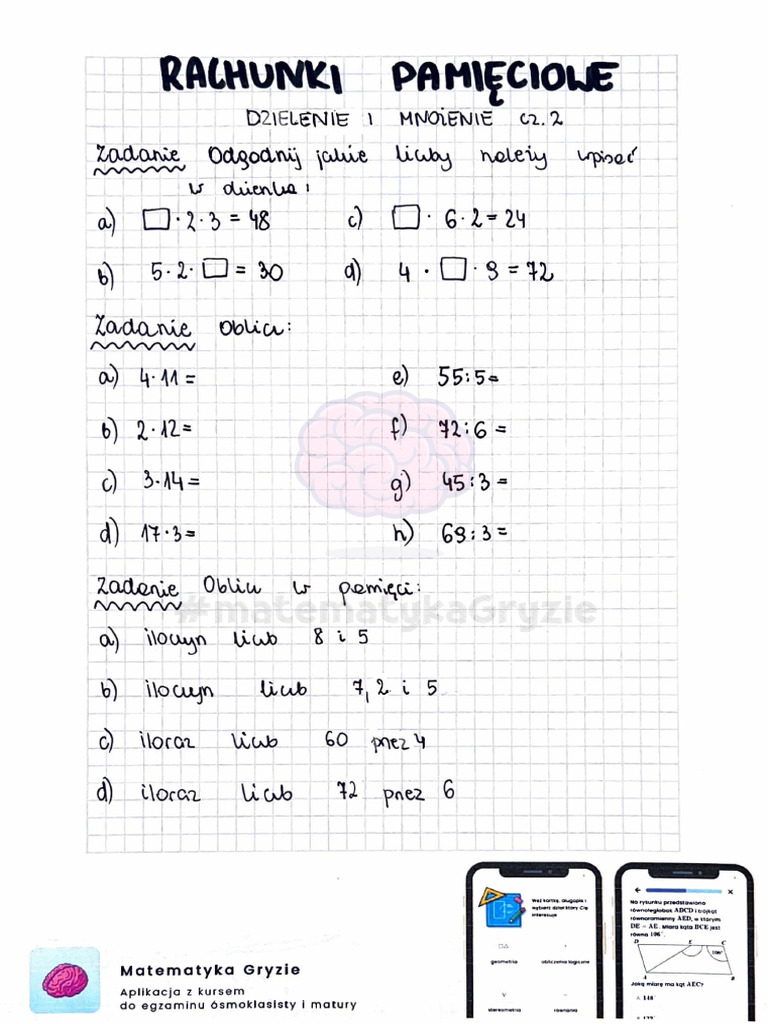 RACHUNKI PAMIĘCIOWE
DZIELENIE I MNOŻENIE cz. 2
Zadanie Odgadnij jakie liczby należy wpisać
w okienka:
a) □ · 2 · 3 = 48
c) □ · 6 · 2 = 24
b) 5 · 2 · □ = 30
d) 4 · □ · 9 = 72
Zadanie Oblicz:
a) 4 · 11 =
e) 55 : 5 =
b) 2 · 12 =
f) 72 : 6 =
c) 3 · 14 =
g) 45 : 3 =
d) 17 · 3 =
h) 69 : 3 =
Zadanie Oblicz w pamięci:
#matematykaGryzie
a) iloczyn liczb 8 i 5
b) iloczyn liczb 7, 2 i 5
c) iloraz liczb 60 przez 4
d) iloraz liczb 72 przez 6
Matematyka Gryzie
Aplikacja z kursem
do egzaminu ósmoklasisty i matury
Weź kartkę, długopis i
wybierz dział który Cię
interesuje
geometria
obliczenia logiczne
stereometria
równania
Na rysunku przedstawiono
równoległobok ABCD i trójkąt
równoramienny AED, w którym
DE = AE. Miara kąta BCE jest
równa 106°.
D E C
106°
A B
Jaką miarę ma kąt AEC?
A 148°